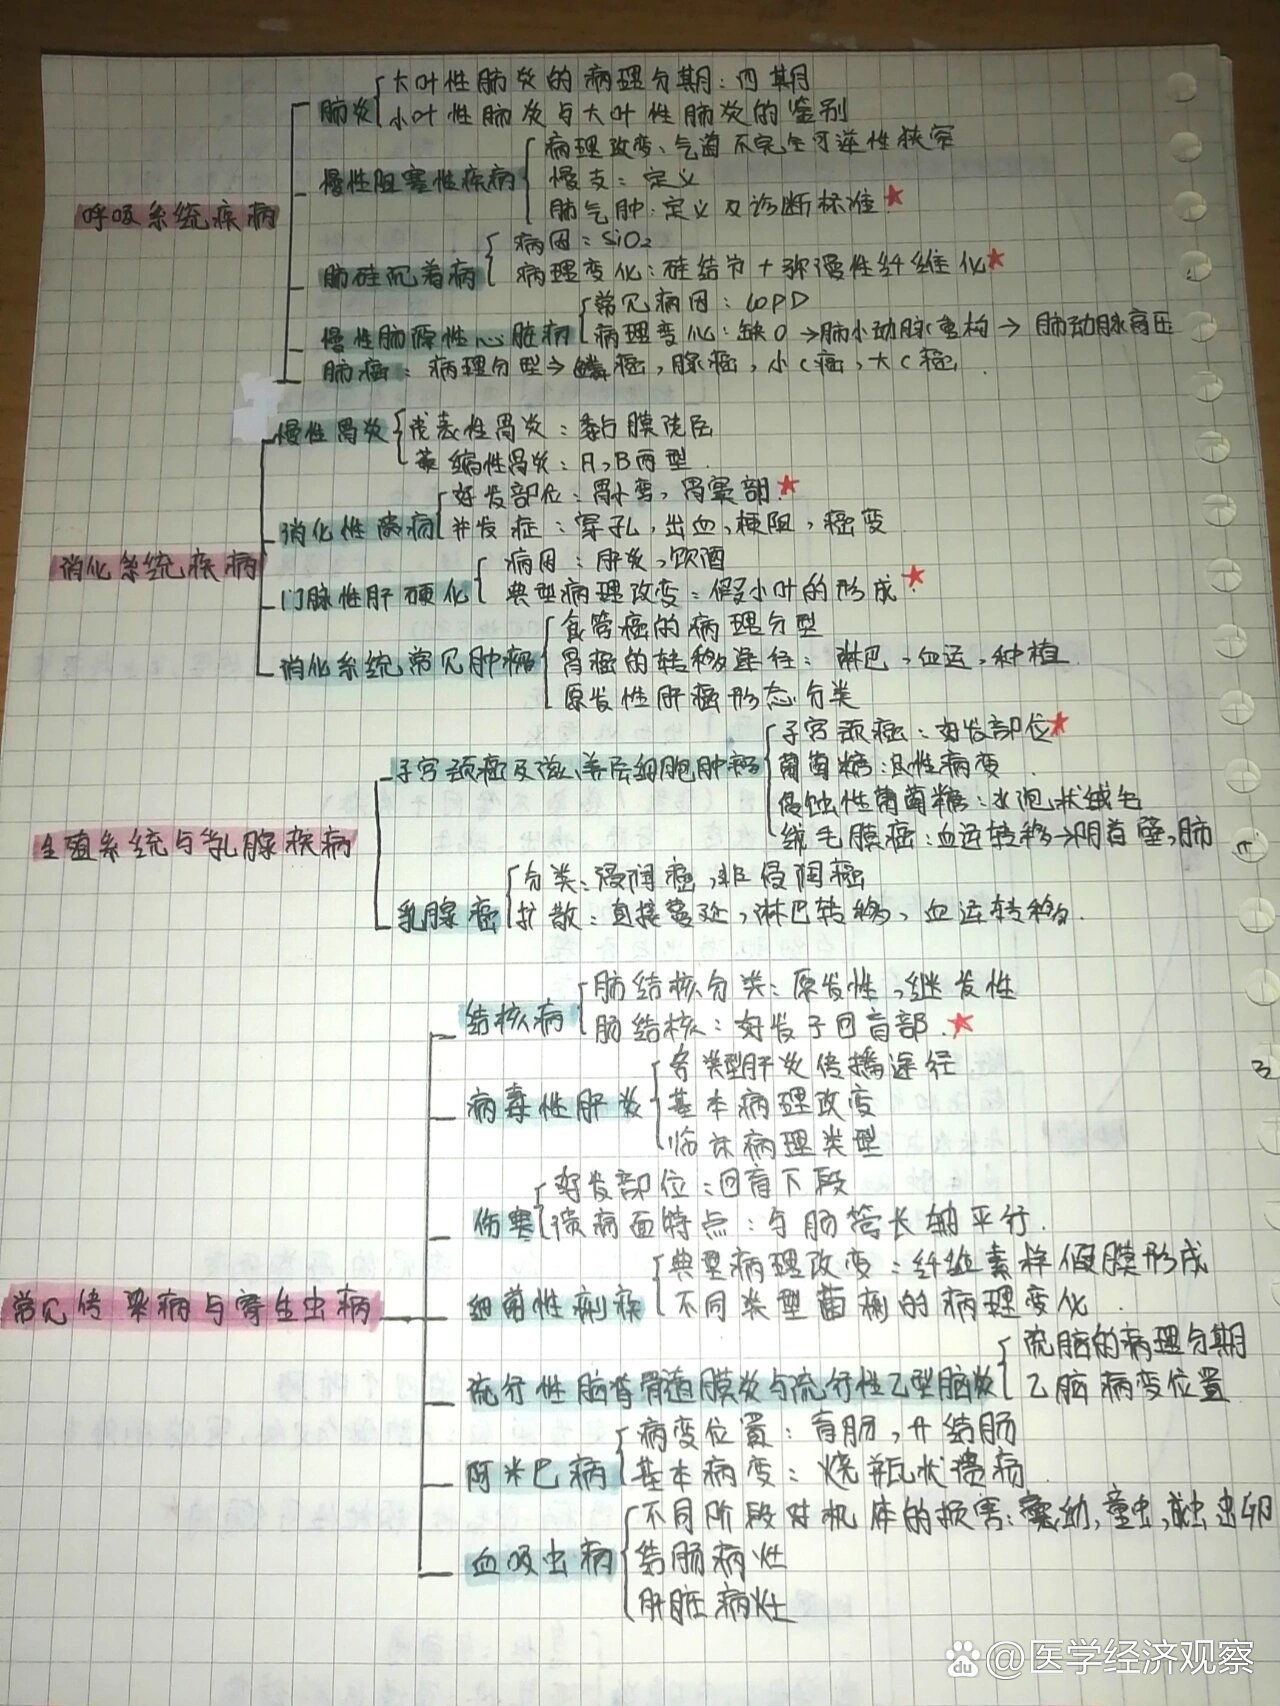 肺炎
大叶性肺炎的病理分期：四期
小叶性肺炎与大叶性肺炎的鉴别
慢性阻塞性疾病
病理改变、气道不完全可逆性狭窄
慢支：定义
肺气肿：定义及诊断标准★
呼吸系统疾病
肺硅沉着病
病因：SiO₂
病理变化：硅结节+弥漫性纤维化★
慢性肺源性心脏病
常见病因：COPD
病理变化：缺O→肺小动脉重构→肺动脉高压
肺癌：病理分型→鳞癌，腺癌，小C癌，大C癌
慢性胃炎
浅表性胃炎：黏膜浅层
萎缩性胃炎：A，B两型
消化性溃疡
好发部位：胃小弯，胃窦部★
并发症：穿孔，出血，梗阻，癌变
消化系统疾病
门脉性肝硬化
病因：肝炎，饮酒
典型病理改变：假小叶的形成★
消化系统常见肿瘤
食管癌的病理分型
胃癌的转移途径：淋巴，血运，种植
原发性肝癌形态分类
子宫颈癌及滋养层细胞肿瘤
子宫颈癌：好发部位★
葡萄糖：良性病变
侵蚀性葡萄糖：水泡状绒毛
绒毛膜癌：血运转移→阴道壁，肺
生殖系统与乳腺疾病
乳腺癌
分类：浸润癌，非侵润癌
扩散：直接蔓延，淋巴转移，血运转移
结核病
肺结核分类：原发性，继发性
肠结核：好发于回盲部★
病毒性肝炎
各类型肝炎传播途径
基本病理改变
临床病理类型
伤寒
好发部位：回盲下段
溃疡面特点：与肠管长轴平行
常见传染病与寄生虫病
细菌性痢疾
典型病理改变：纤维素样假膜形成
不同类型菌痢的病理变化
流行性脑脊骨髓膜炎与流行性乙型脑炎
流脑的病理分期
乙脑病变位置
阿米巴病
病变位置：盲肠，升结肠
基本病变：烧瓶状溃疡
血吸虫病
不同阶段对机体的损害：幼，童虫，成虫，虫卵
结肠病灶
肝脏病灶
Bai du @医学经济观察